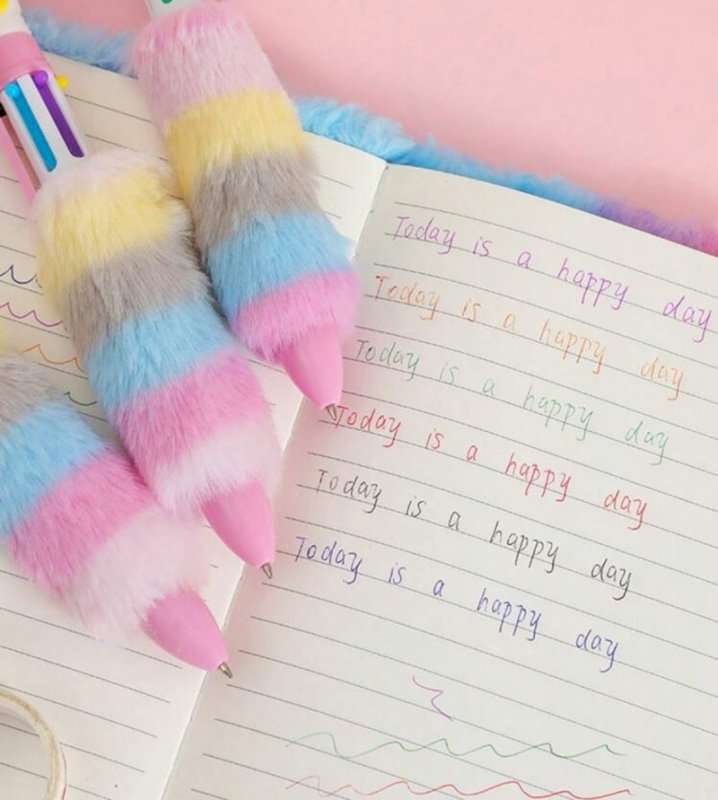 Today is a happy day
Today is a happy day
Today is a happy day
Today is a happy day
Today is a happy day
Today is a happy day